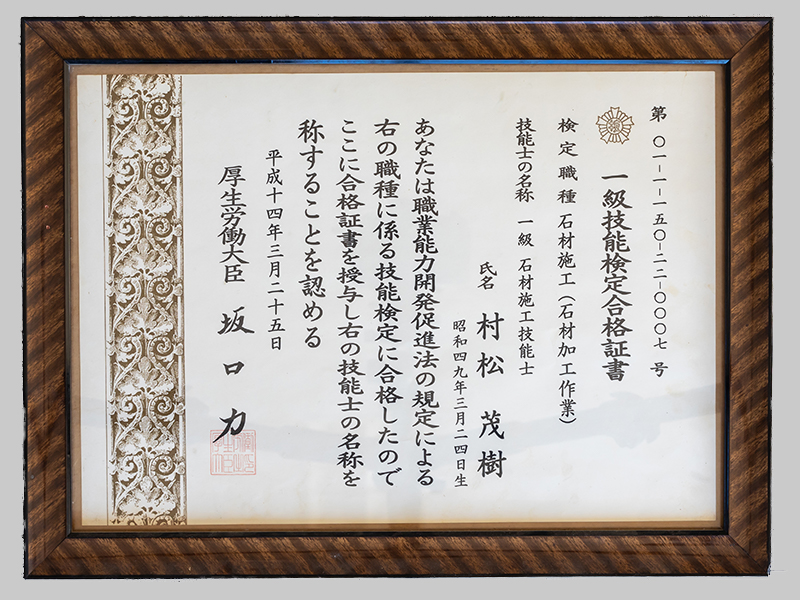 第〇一-一-一五〇-二二-〇〇〇七号
一級技能検定合格証書
検定職種 石材施工(石材加工作業)
技能士の名称 一級 石材施工技能士
氏名 村松 茂樹
昭和四九年三月二四日生
あなたは職業能力開発促進法の規定による
右の職種に係る技能検定に合格したので
ここに合格証書を授与し右の技能士の名称を
称することを認める
平成十四年三月二十五日
厚生労働大臣 坂口力